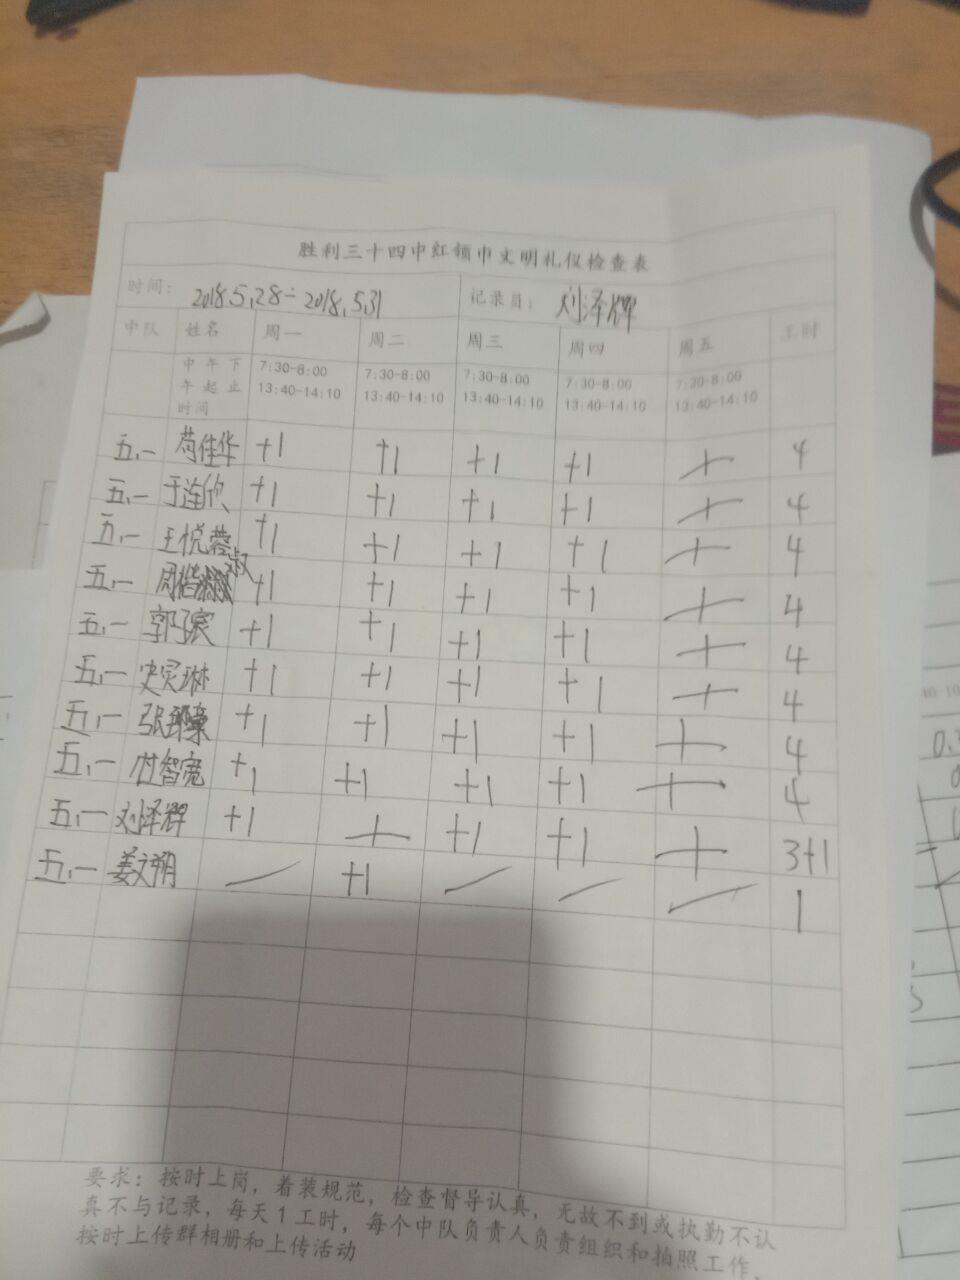 胜利三十四中红领巾文明礼仪检查表
时间： 2018.5.28－2018.5.31 记录员： 刘泽辉
中队 姓名 周一 周二 周三 周四 周五 工时
中午下午起止时间 7:30-8:00 13:40-14:10 7:30-8:00 13:40-14:10 7:30-8:00 13:40-14:10 7:30-8:00 13:40-14:10 7:30-8:00 13:40-14:10
五.一 苟佳华 +1 +1 +1 +1 4
五.一 于连欣 +1 +1 +1 +1 4
五.一 王悦蓉 +1 +1 +1 +1 4
五.一 +1 +1 +1 +1 4
五.一 郭子宸 +1 +1 +1 +1 4
五.一 史灵琳 +1 +1 +1 +1 4
五.一 +1 +1 +1 +1 4
五.一 杜智宽 +1 +1 +1 +1 4
五.一 刘泽辉 +1 +1 +1 3+1
五.一 姜文朔 +1 1
要求：按时上岗，着装规范，检查督导认真，无故不到或执勤不认
真不与记录，每天1工时，每个中队负责人负责组织和拍照工作，
按时上传群相册和上传活动